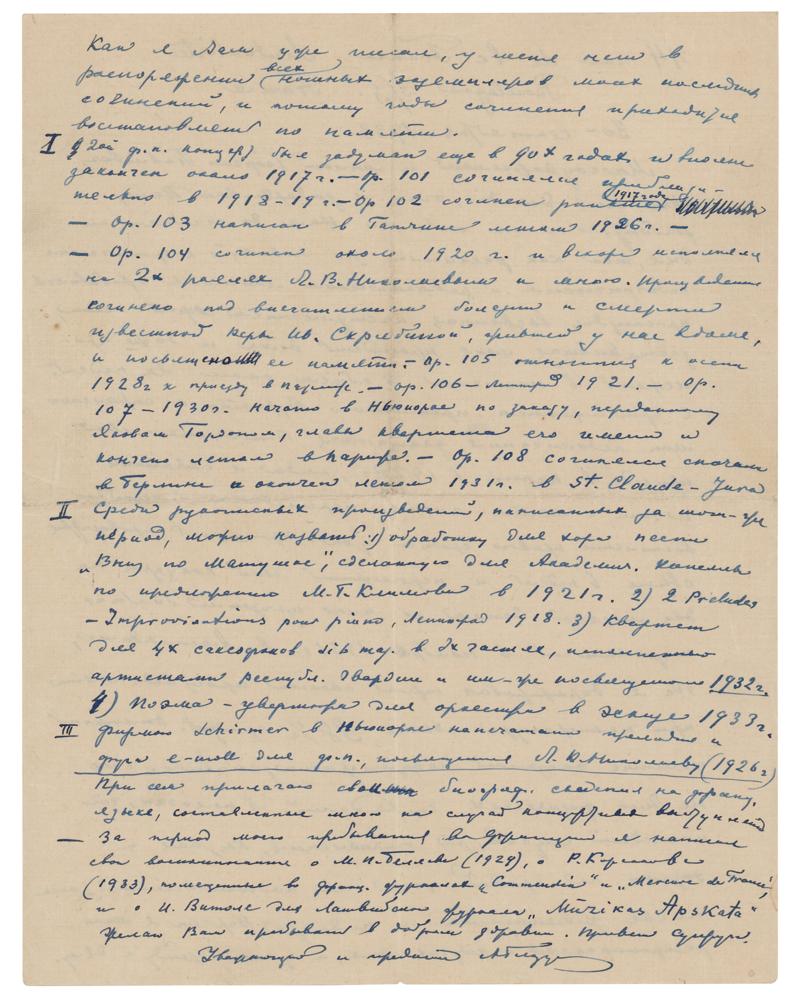 Как я Вам уже писал, у меня нет в
распоряжении всех нотных экземпляров моих последних
сочинений, и потому годы сочинения приходится
восстановлять по памяти.
I 2ой ф.п. концерт был задуман еще в 90х годах и вполне
закончен около 1917 г. — Op. 101 сочинялся приблизи-
тельно в 1918-19 г. — Op 102 сочинен 1917 году
— Op. 103 написан в Гатчине летом 1926 г. —
— Op. 104 сочинен около 1920 г. и вскоре исполнялся
на 2х роялях Л. В. Николаевым и мною. Произведение
сочинено под впечатлением болезни и смерти
известной Веры Ив. Скрябиной, жившей у нас в доме,
и посвящено ее памяти. — Op. 105 относится к осени
1928 г к приезду в Париж. — Op. 106 — Ленинград 1921. — Op.
107 — 1930 г. Начато в Ньюиорке по заказу, переданному
Яковом Гордоном, главы квартета его имени и
кончено летом в Париже. — Op. 108 сочинялся сначала
в Берлине и окончен летом 1931 г. в St. Claude - Jura
II Среди рукописных произведений, написанных за тот-же
период, можно назвать: 1) обработку для хора песни
„Вниз по Матушке", сделанную для Академич. Капеллы
по предложению М. Г. Климова в 1921 г. 2) 2 Préludes
— Improvisations pour piano, Ленинград 1918. 3) Квартет
для 4х саксофонов si b maj. в 3х частях, исполненный
артистами Республ. Гвардии и им-же посвященный 1932 г.
4) Поэма - увертюра для оркестра в конце 1933 г.
III Фирмою Schirmer в Ньюиорке напечатаны прелюдия и
фуга e-moll для ф.п., посвященная Л. В. Николаеву (1926 г.)
При сем прилагаю биограф. сведения на франц.
языке, составленные мною на случай концертных выступлений
— За период моего пребывания во Франции я написал
свои воспоминания о М. П. Беляеве (1929), о Р. Корсакове
(1933), помещенные во франц. журналах „Commedia" и „Mercure de France",
и о И. Витоле для Латвийского журнала „Mūzikas Apskata"
Желаю Вам пребывать в добром здравии. Привет супруге.
Уважающий и преданный АГлазун